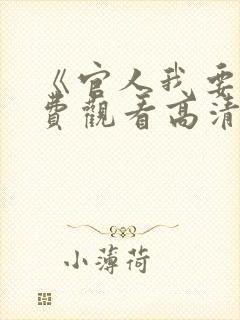 《官人我要
費觀看高清
小薄荷